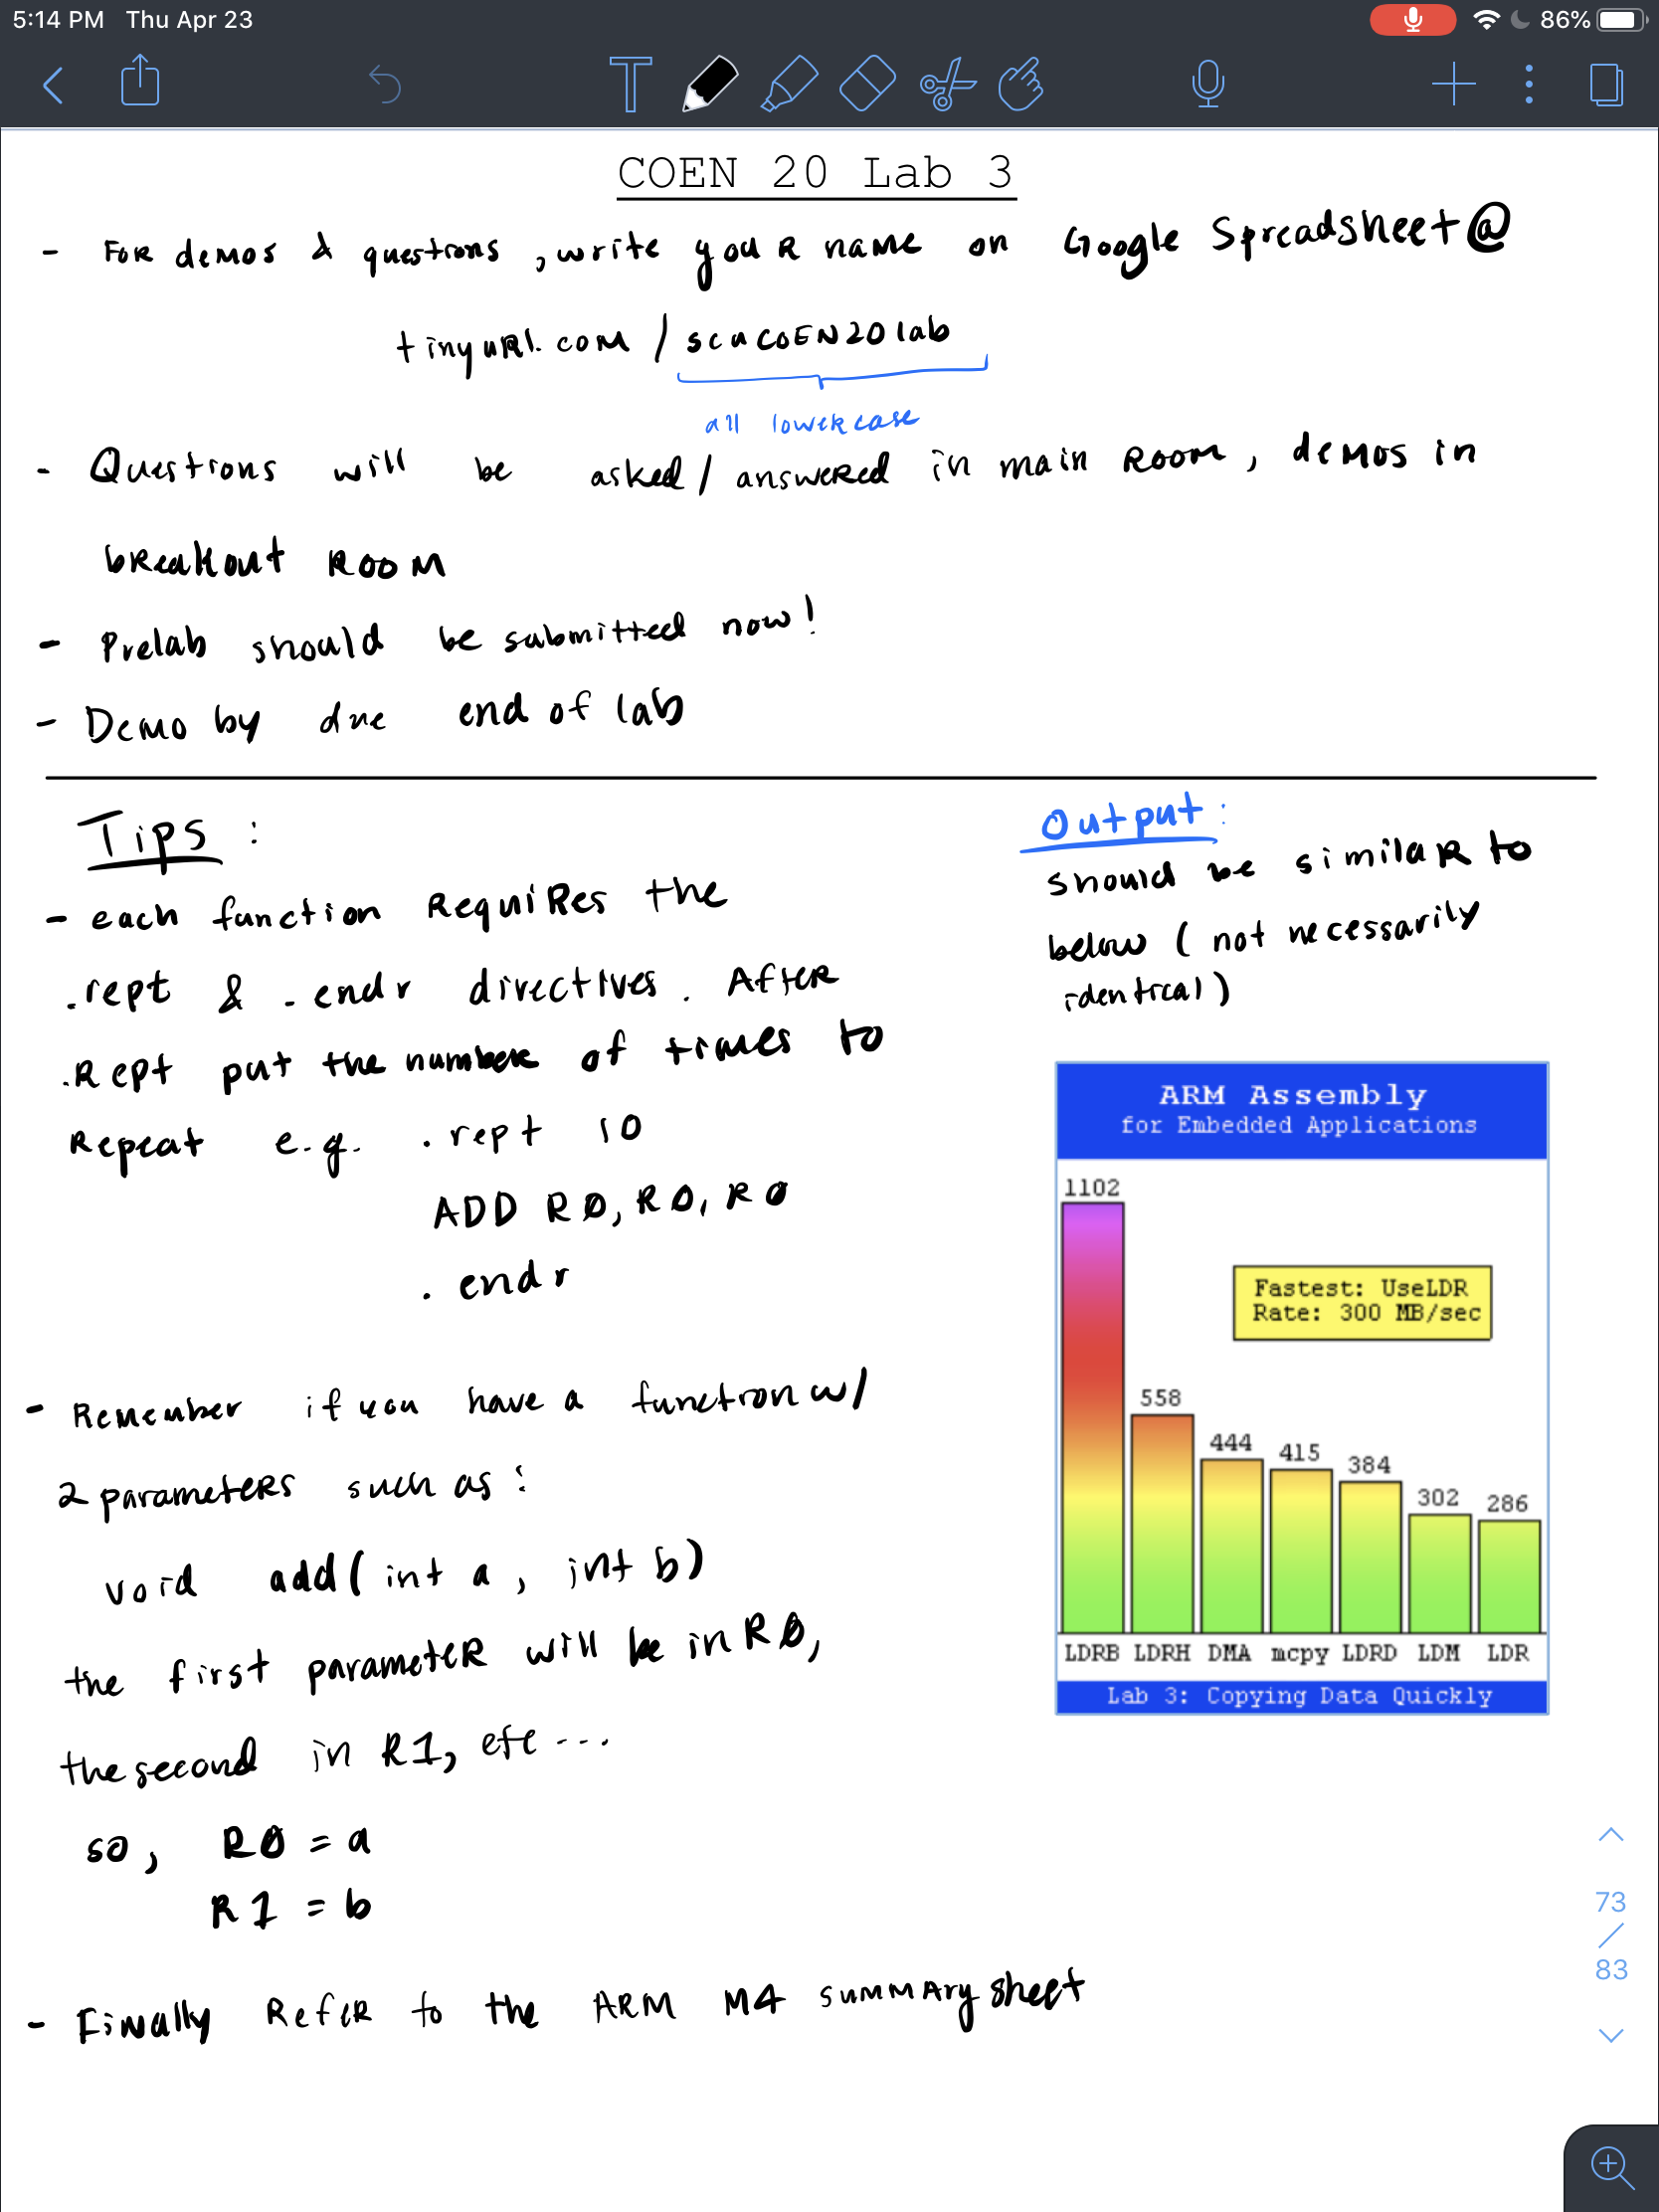 5:14 PM Thu Apr 23
86%
COEN 20 Lab 3
- For demos & questions, write your name on Google Spreadsheet @
tinyurl.com / scuCOEN20lab
all lowercase
- Questions will be asked / answered in main room, demos in
breakout room
- Prelab should be submitted now!
- Demo by due end of lab
Tips :
- each function requires the
.rept & .endr directives. After
.rept put the number of times to
Repeat e.g. .rept 10
ADD R0, R0, R0
.endr
- Remember if you have a function w/
2 parameters such as :
void add( int a, int b)
the first parameter will be in R0,
the second in R1, etc ...
so, R0 = a
R1 = b
- Finally Refer to the ARM M4 summary sheet
Output :
should be similar to
below ( not necessarily
identical )
ARM Assembly
for Embedded Applications
1102
558
444
415
384
302
286
Fastest: UseLDR
Rate: 300 MB/sec
LDRB LDRH DMA mcpy LDRD LDM LDR
Lab 3: Copying Data Quickly
73
/
83